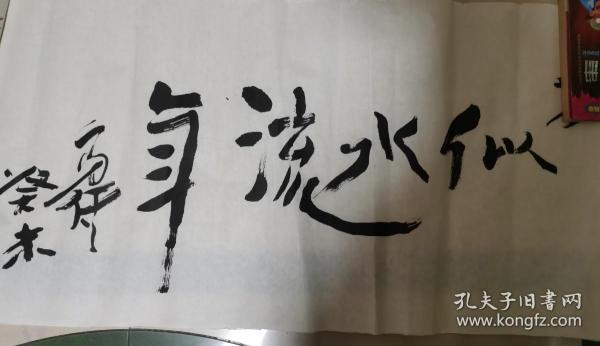 似水流年
癸未
孔夫子旧书网
www.kongfz.com